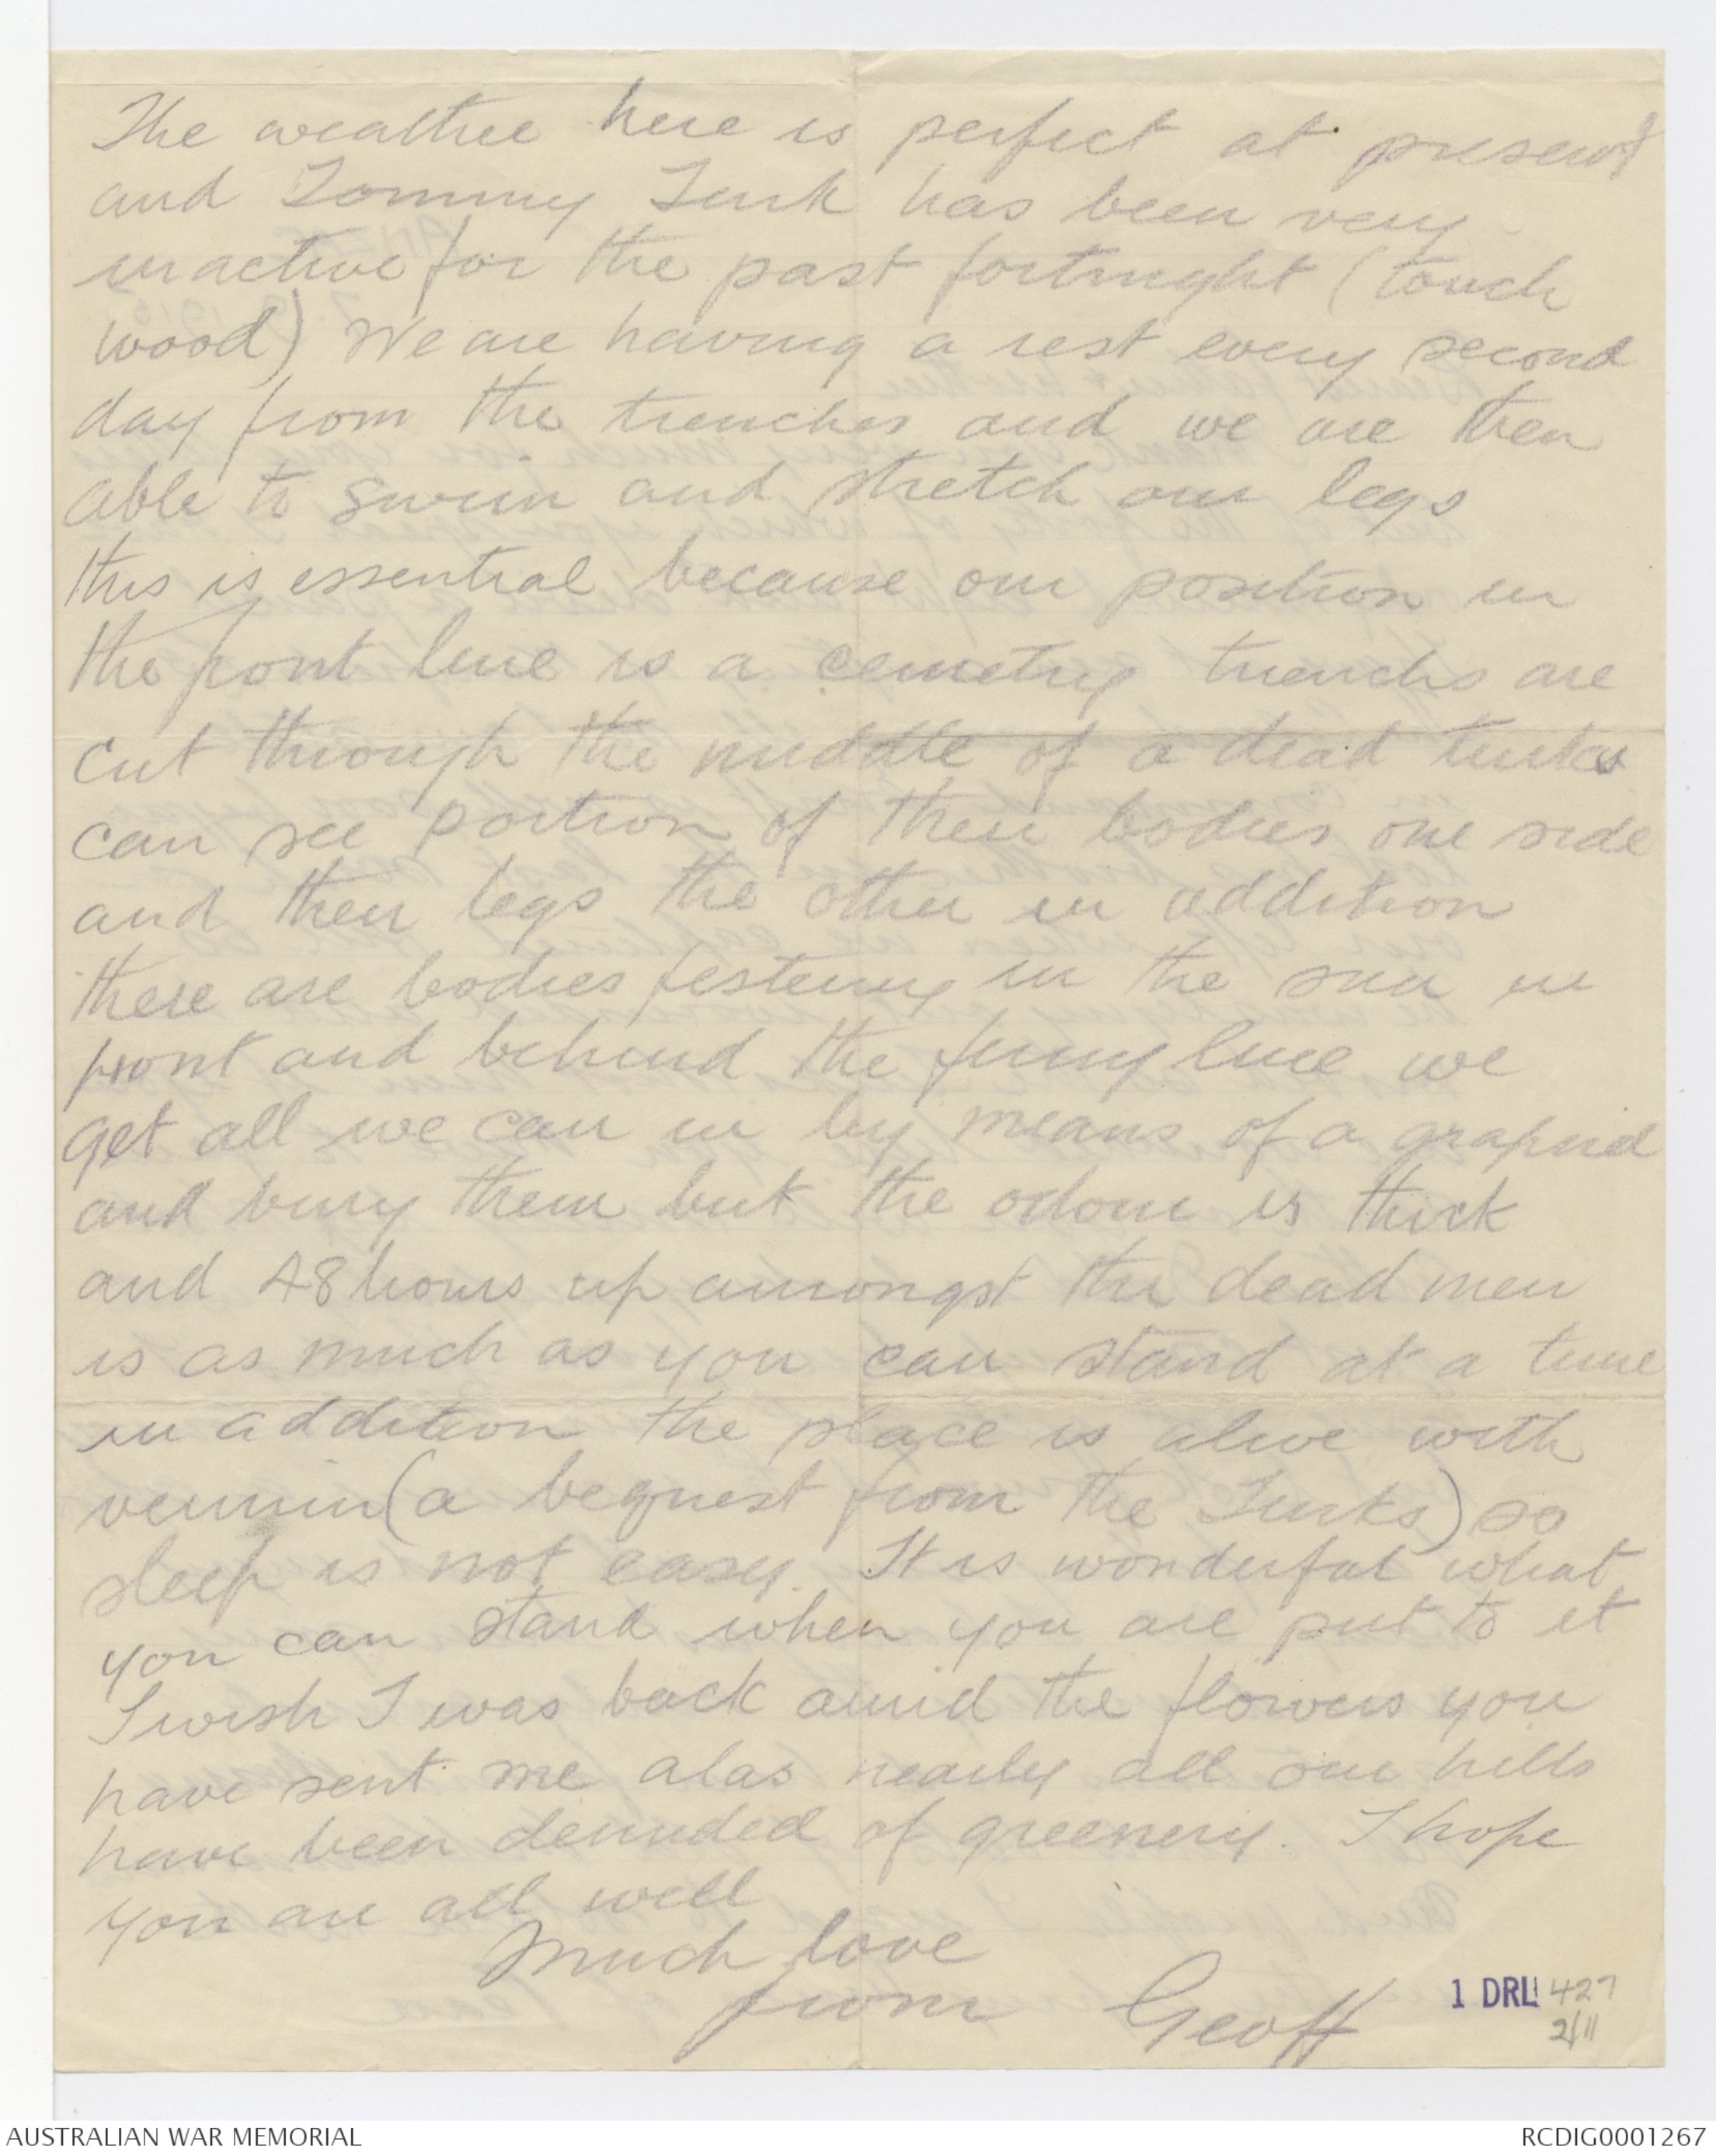 The weather here is perfect at present
and Tommy Turk has been very
inactive for the past fortnight (touch
wood) We are having a rest every second
day from the trenches and we are then
able to swim and stretch our legs
this is essential because our position in
the front line is a cemetry trenchs are
cut through the middle of a dead turks
can see portion of their bodies one side
and their legs the other in addition
there are bodies festering in the sun in
front and behind the firing line we
get all we can in by means of a grapnel
and bury them but the odour is thick
and 48 hours up amongst the dead men
is as much as you can stand at a time
in addition the place is alive with
vermin (a bequest from the Turks) so
sleep is not easy. It is wonderful what
you can stand when you are put to it
I wish I was back amid the flowers you
have sent me alas nearly all our hills
have been denuded of greenery. I hope
you are all well
Much love
from Geoff
1 DRL 427
2/11
AUSTRALIAN WAR MEMORIAL
RCDIG0001267